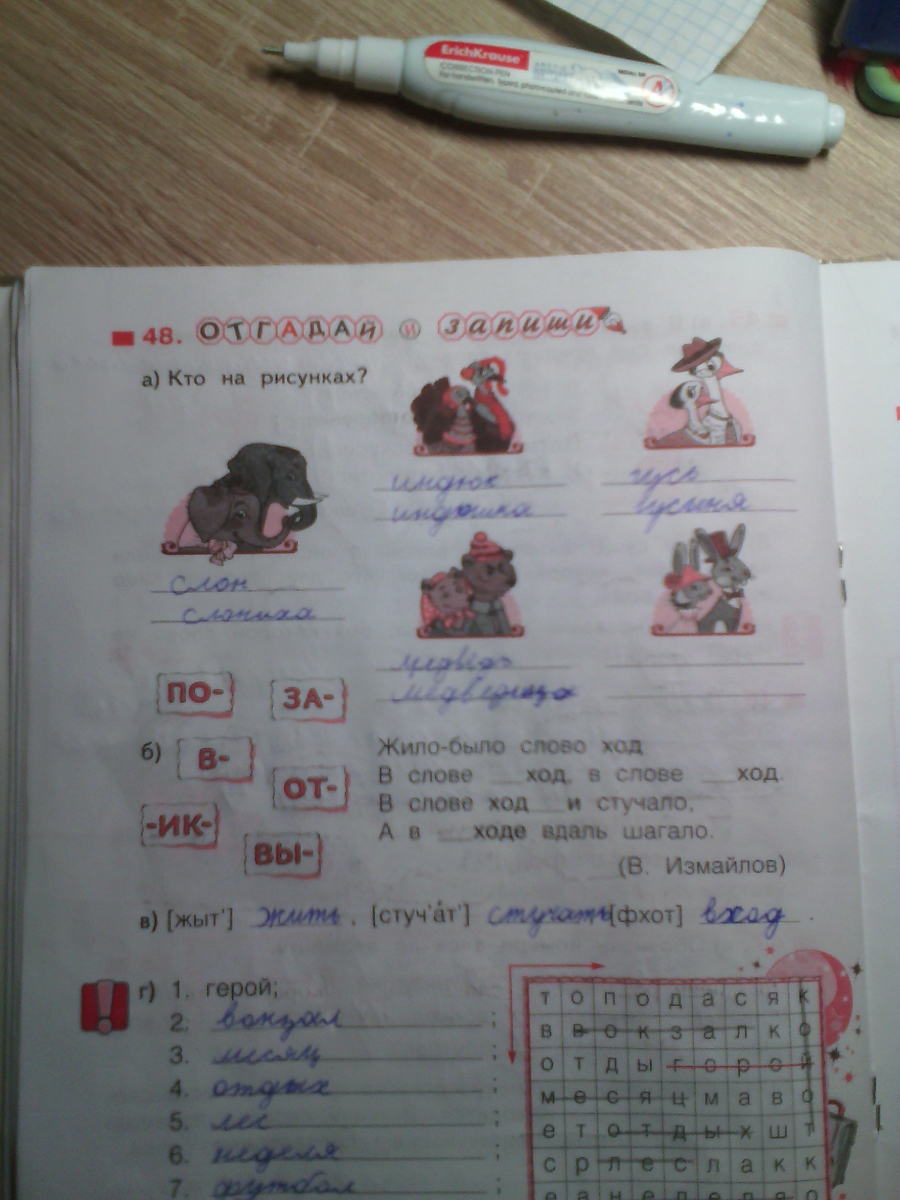 ErichKrause
CORRECTION PEN
48. ОТГАДАЙ и запиши
а) Кто на рисунках?
индюк гусь
индюшка гусыня
слон
слониха
медведь
медведица
ПО- ЗА-
б) В-
ОТ-
-ИК-
ВЫ-
Жило-было слово ход
В слове __ход, в слове __ход.
В слове ход__и стучало,
А в __ходе вдаль шагало.
(В. Измайлов)
в) [жыт'] жить, [стуч'а́т'] стучать [фхот] вход.
г) 1. герой;
2. вокзал;
3. месяц;
4. отдых;
5. лес;
6. неделя;
7. футбол
т о п о д а с я к
в в о к з а л к о
о т д ы г е р о й
м е с я ц м а в о
е т о т д ы х ш т
с р л е с л а к к